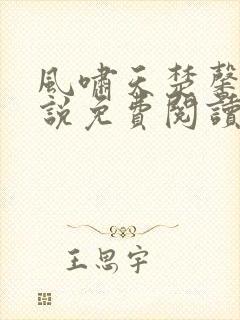 風嘯天楚馨
說免費閱讀
王思宇